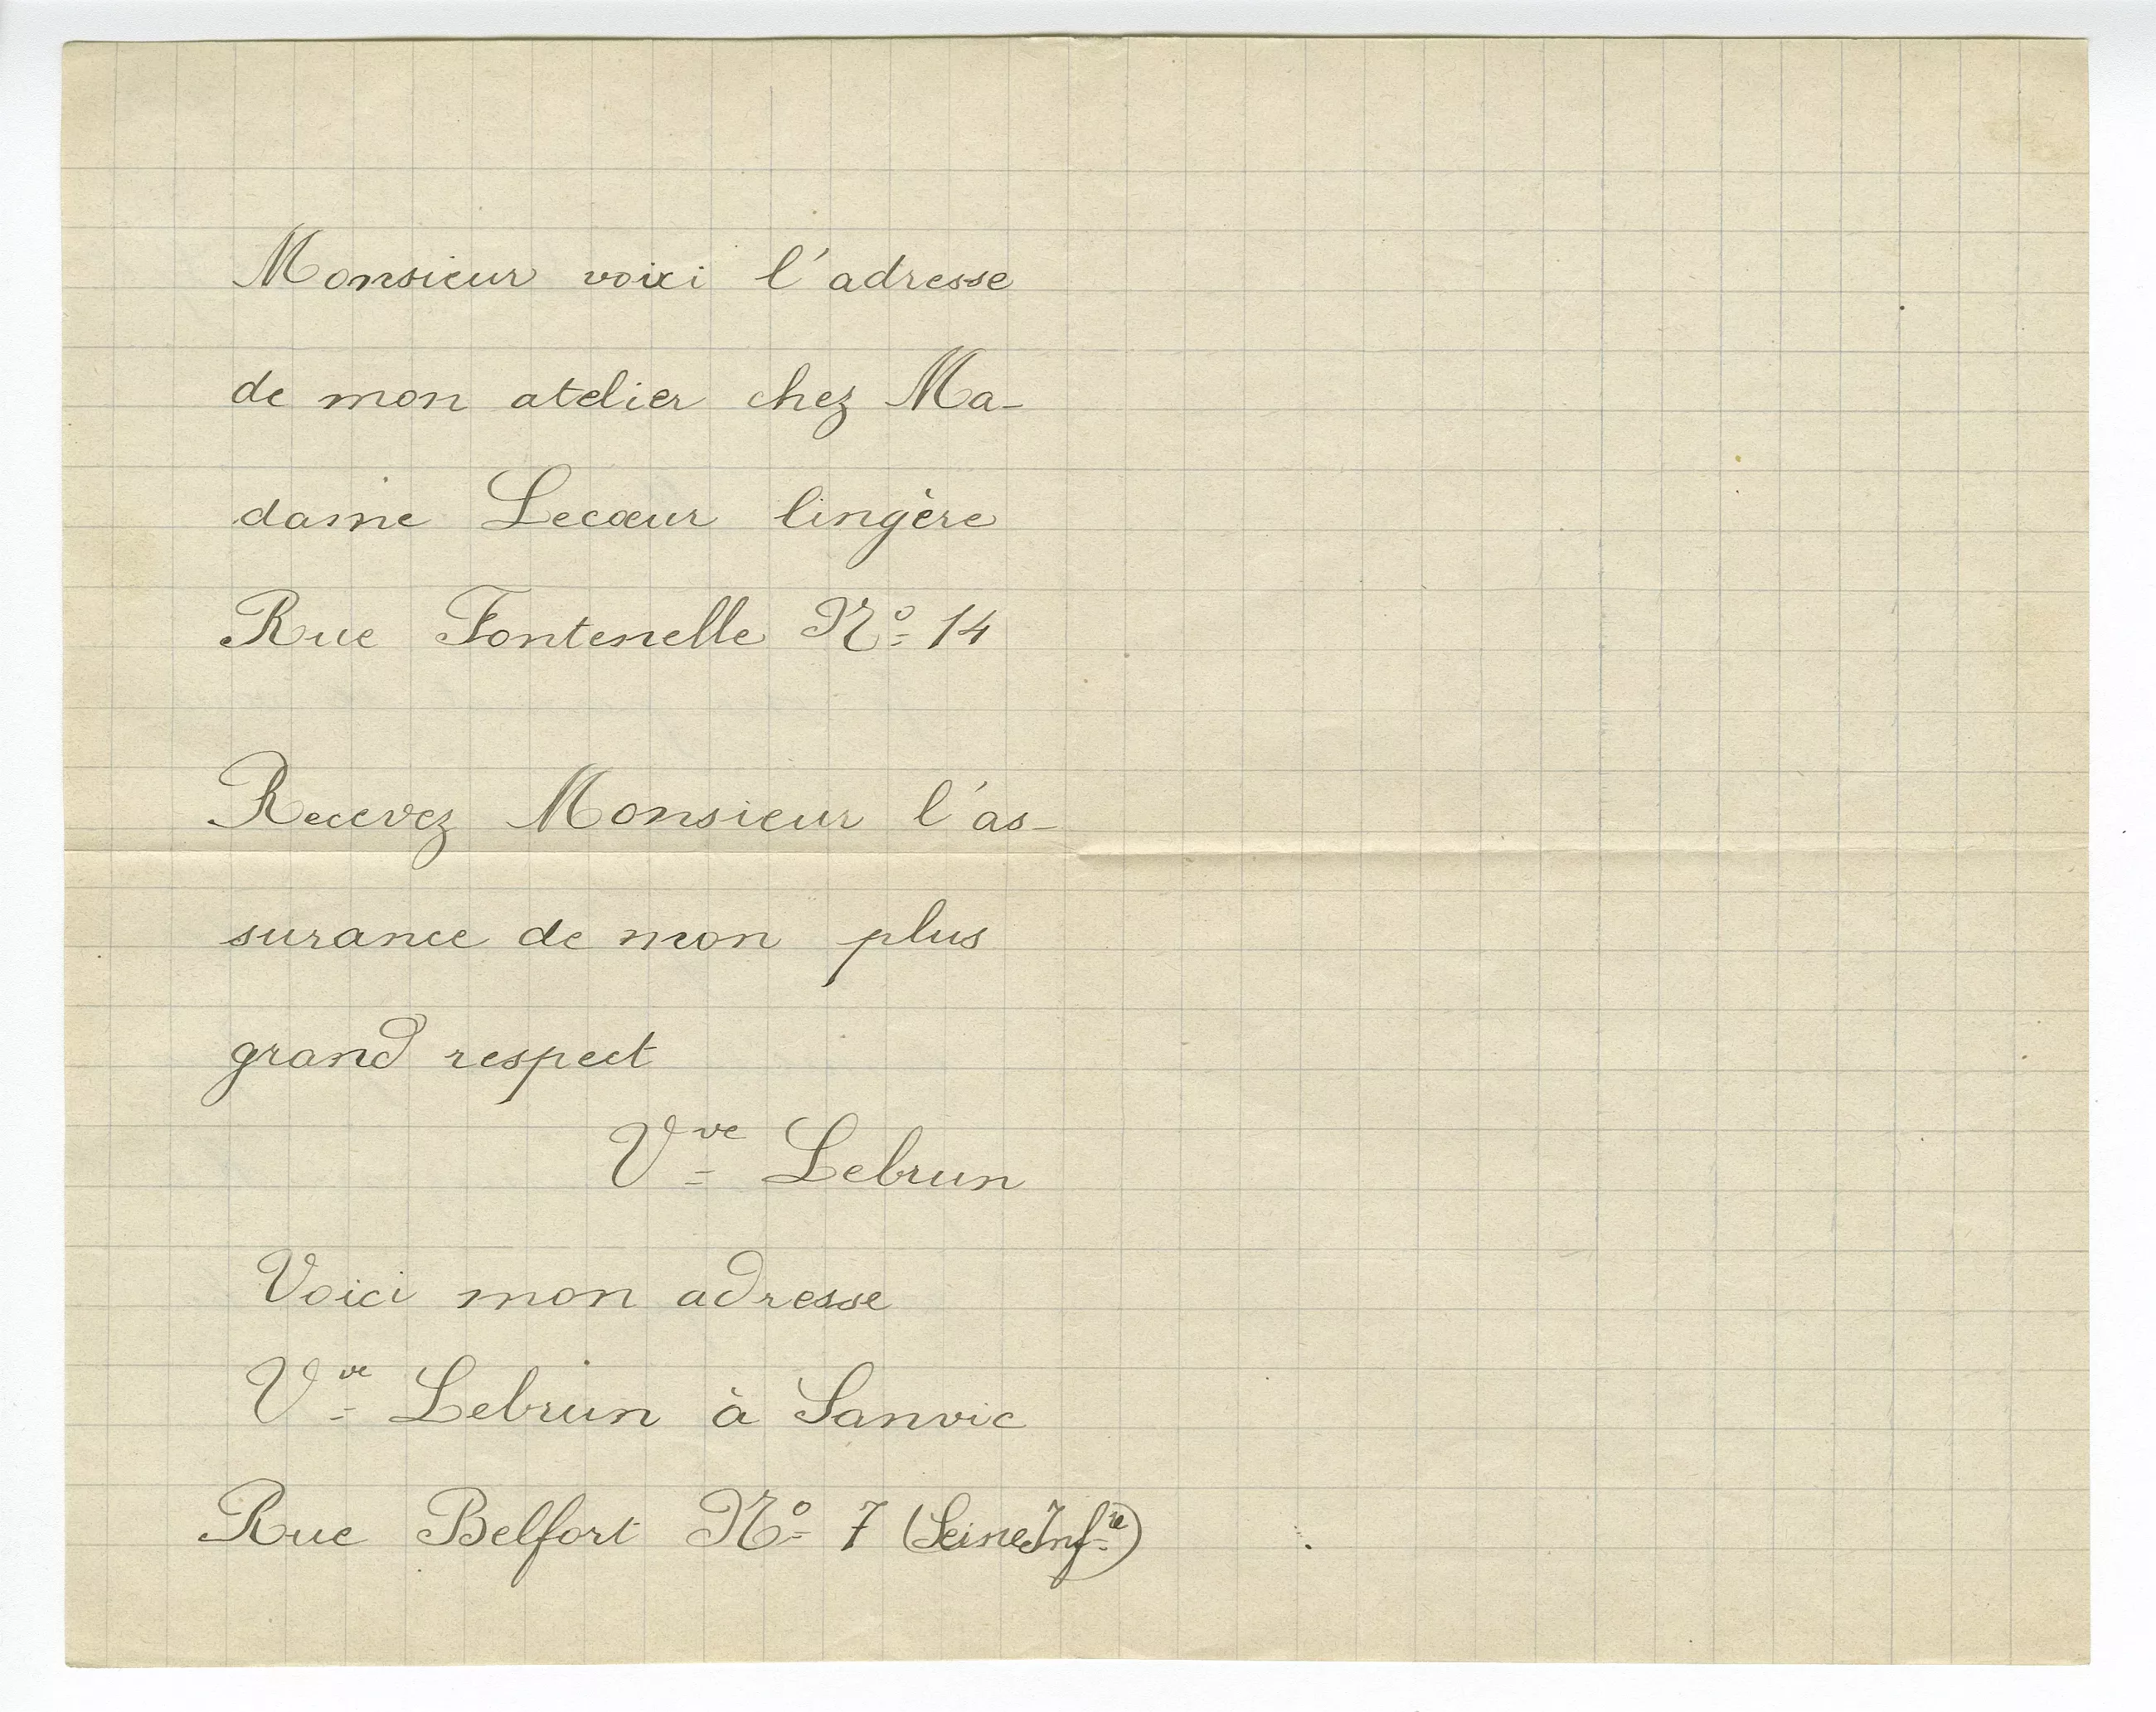 Monsieur voici l'adresse
de mon atelier chez Ma-
dame Lecœur lingère
Rue Fontenelle Nº 14
Recevez Monsieur l'as-
surance de mon plus
grand respect
Vve Lebrun
Voici mon adresse
Vve Lebrun à Sanvic
Rue Belfort Nº 7 (Seine Infre)